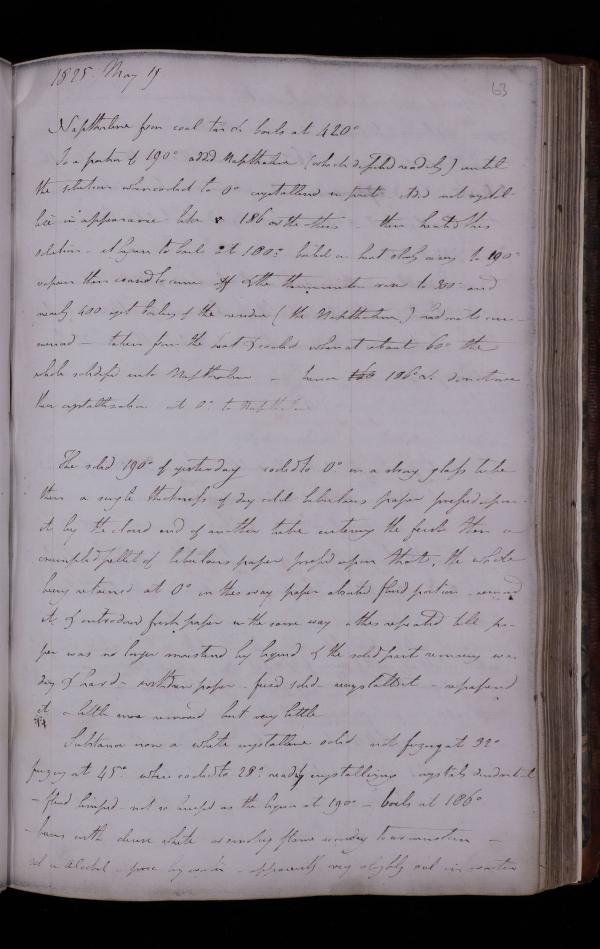 1825. May 19
63
Naphthaline from coal tar &c boils at 420°
To a portion of 190° added Naphthaline (which dissolved readily) until
the solution when cooled to 0° crystallized in part did not crystal-
lize in appearance like 186 or the others - then heated this
solution - began to boil at 180° boiled on heat slowly rising to 190°
vapour then ceased to come off & the thermometer rose to 300 and
nearly 400 yet boiling of the residue (the Naphthaline) had not com-
menced - taken from the heat & cooled when at about 60° the
whole solidified into Naphthaline - hence 186° &c do not owe
their crystallization at 0° to Naphthaline
The solid 190° of yesterday cooled to 0° in a strong glass tube
then a single thickness of dry cold bibulous paper pressed upon
it by the closed end of another tube entering the first then a
crumpled pellet of bibulous paper pressed upon that, the whole
being retained at 0° in this way paper absorbed fluid portion - removed
it & introduced fresh paper in the same way & this repeated till pa-
per was no longer moistened by liquid & the solid part remaining was
dry & hard - withdrew paper - fused solid - recrystallized it - repressed
it a little more removed but very little
Substance now a white crystalline solid not fusing at 32°
fusing at 45° when cooled to 28° readily crystallizing crystals dendritical
- fluid limpid - not so limpid as the liquor at 190° - boils at 186°
- burns with dense white smoky flame
sol in Alcohol - precip by water - apparently very slightly sol in water